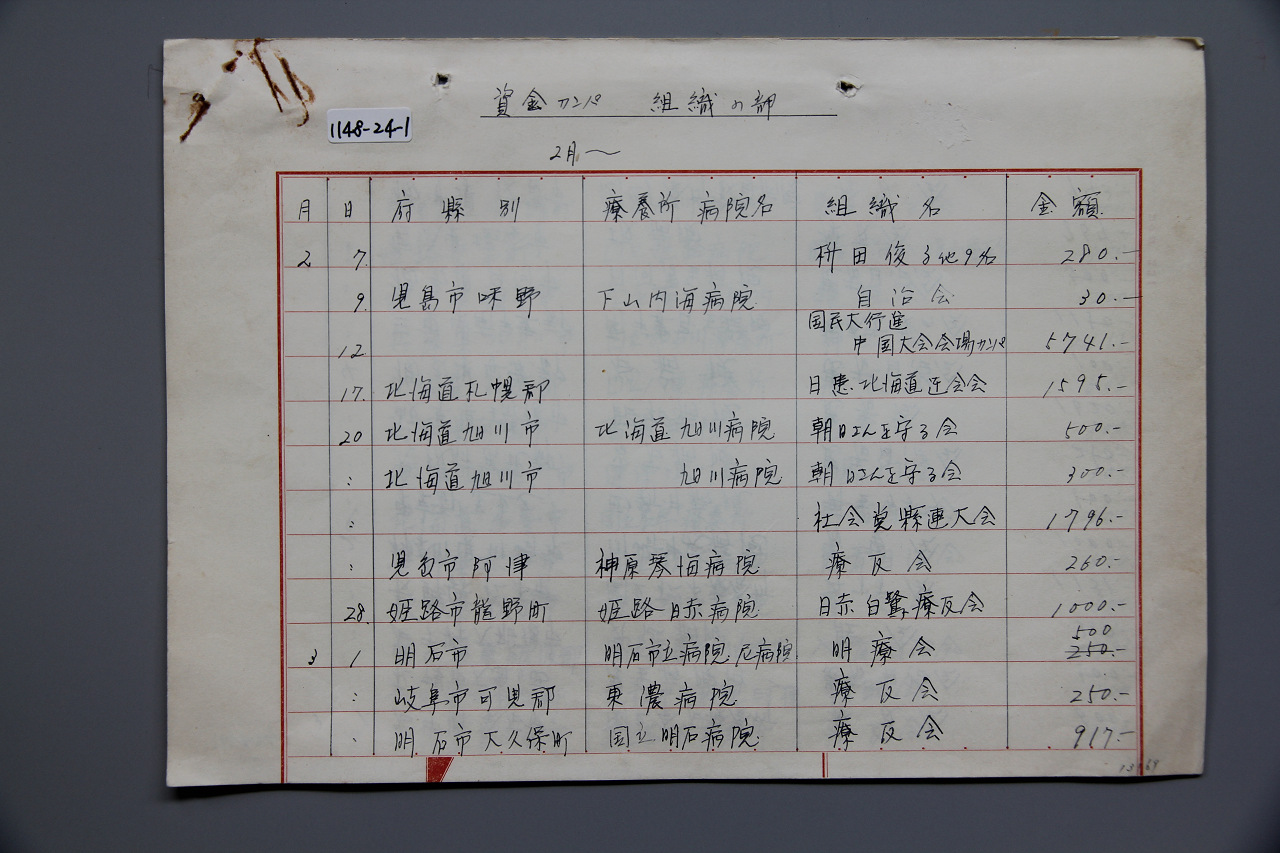 資金カンパ 組織の部
1148-24-1
2月〜
月 日 府縣別 療養所 病院名 組織名 金額
2 7. 枡田俊子他9名 280.-
9. 児島市味野 下山内海病院 自治会 30.-
国民大行進
12. 中国大会会場カンパ 5741.-
17. 北海道札幌郡 日患北海道連合会 1595.-
20 北海道旭川市 北海道旭川病院 朝日さんを守る会 500.-
: 北海道旭川市 旭川病院 朝日さんを守る会 300.-
: 社会党縣連大会 1796.-
: 児島市阿津 神原琴海病院 療友会 260.-
28. 姫路市龍野町 姫路日赤病院 日赤白鷺療友会 1000.-
500
3 1 明石市 明石市立病院 尼病院 明療会 250.-
: 岐阜市可児郡 東濃病院 療友会 250.-
: 明石市大久保町 国立明石病院 療友会 917.-